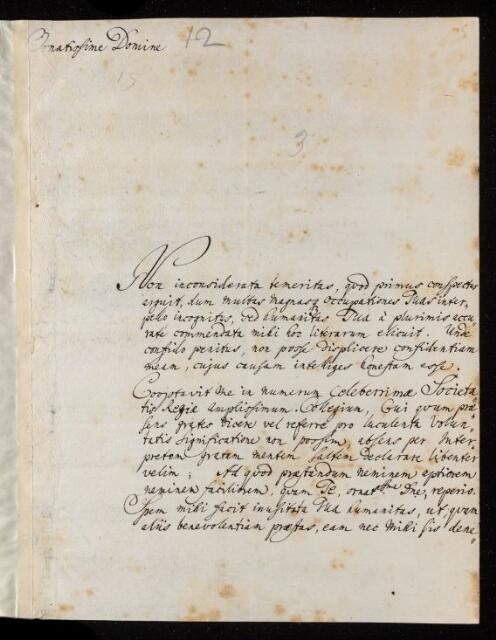 Ornatissime Domine 12
15
3
Non inconsiderata temeritas, quod primus conspectus
arguit, dum multas magnasq occupationes Tuas inter,
pello incognitus, sed humanitas Tua à plurimis accu,
rate commendata mihi hoc literarum elicuit. Unde
confido penitus, non posse displicere confidentiam
meam, cujus causam intelliges honestam esse.
Cooptavit me in numerum Celeberrimæ Societa,
tis Regiæ Amplissimum Collegium, Cui quum præ,
sens grates dicere vel referre pro luculenta volun,
tatis significatione non possim, absens per Inter,
pretem gratam mentem saltem declarare libenter
velim; Ad quod præstandum neminem aptiorem
neminem faciliorem, quam Te, ornatssme Dne, reperio.
Spem mihi facit inusitata Tua humanitas, ut, quum
aliis benevolentiam præstas, eam nec mihi sis dene,